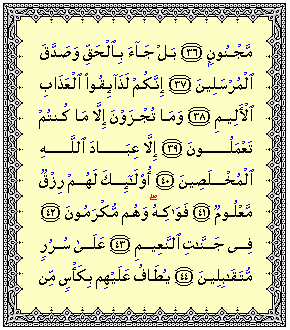 مَّجْنُونٍۭ ﴿٣٦﴾ بَلْ جَآءَ بِٱلْحَقِّ وَصَدَّقَ
ٱلْمُرْسَلِينَ ﴿٣٧﴾ إِنَّكُمْ لَذَآئِقُوا۟ ٱلْعَذَابِ
ٱلْأَلِيمِ ﴿٣٨﴾ وَمَا تُجْزَوْنَ إِلَّا مَا كُنتُمْ
تَعْمَلُونَ ﴿٣٩﴾ إِلَّا عِبَادَ ٱللَّهِ
ٱلْمُخْلَصِينَ ﴿٤٠﴾ أُو۟لَٰٓئِكَ لَهُمْ رِزْقٌ
مَّعْلُومٌ ﴿٤١﴾ فَوَٰكِهُ ۖ وَهُم مُّكْرَمُونَ ﴿٤٢﴾
فِى جَنَّٰتِ ٱلنَّعِيمِ ﴿٤٣﴾ عَلَىٰ سُرُرٍ
مُّتَقَٰبِلِينَ ﴿٤٤﴾ يُطَافُ عَلَيْهِم بِكَأْسٍ مِّن